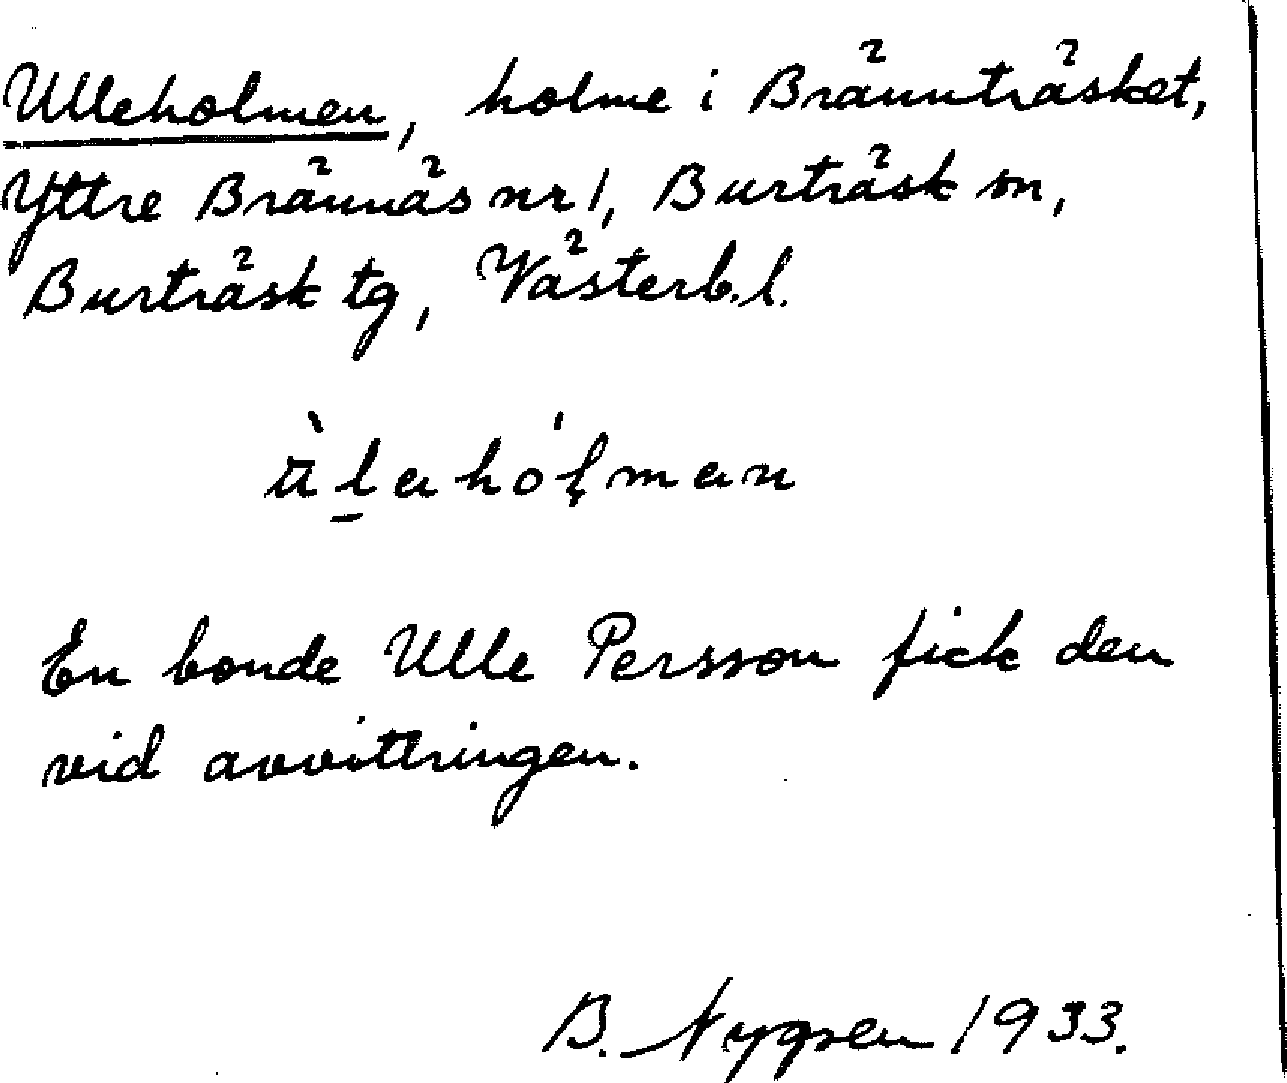 Ulleholmen, holme i Bränträsket,
Yttre Brännäs nr 1, Burträsk sn,
Burträsk tg, Västerb. l.
ùlahólman
En bonde Ulle Persson fick den
vid avvittringen.
B. Nygren 1933.